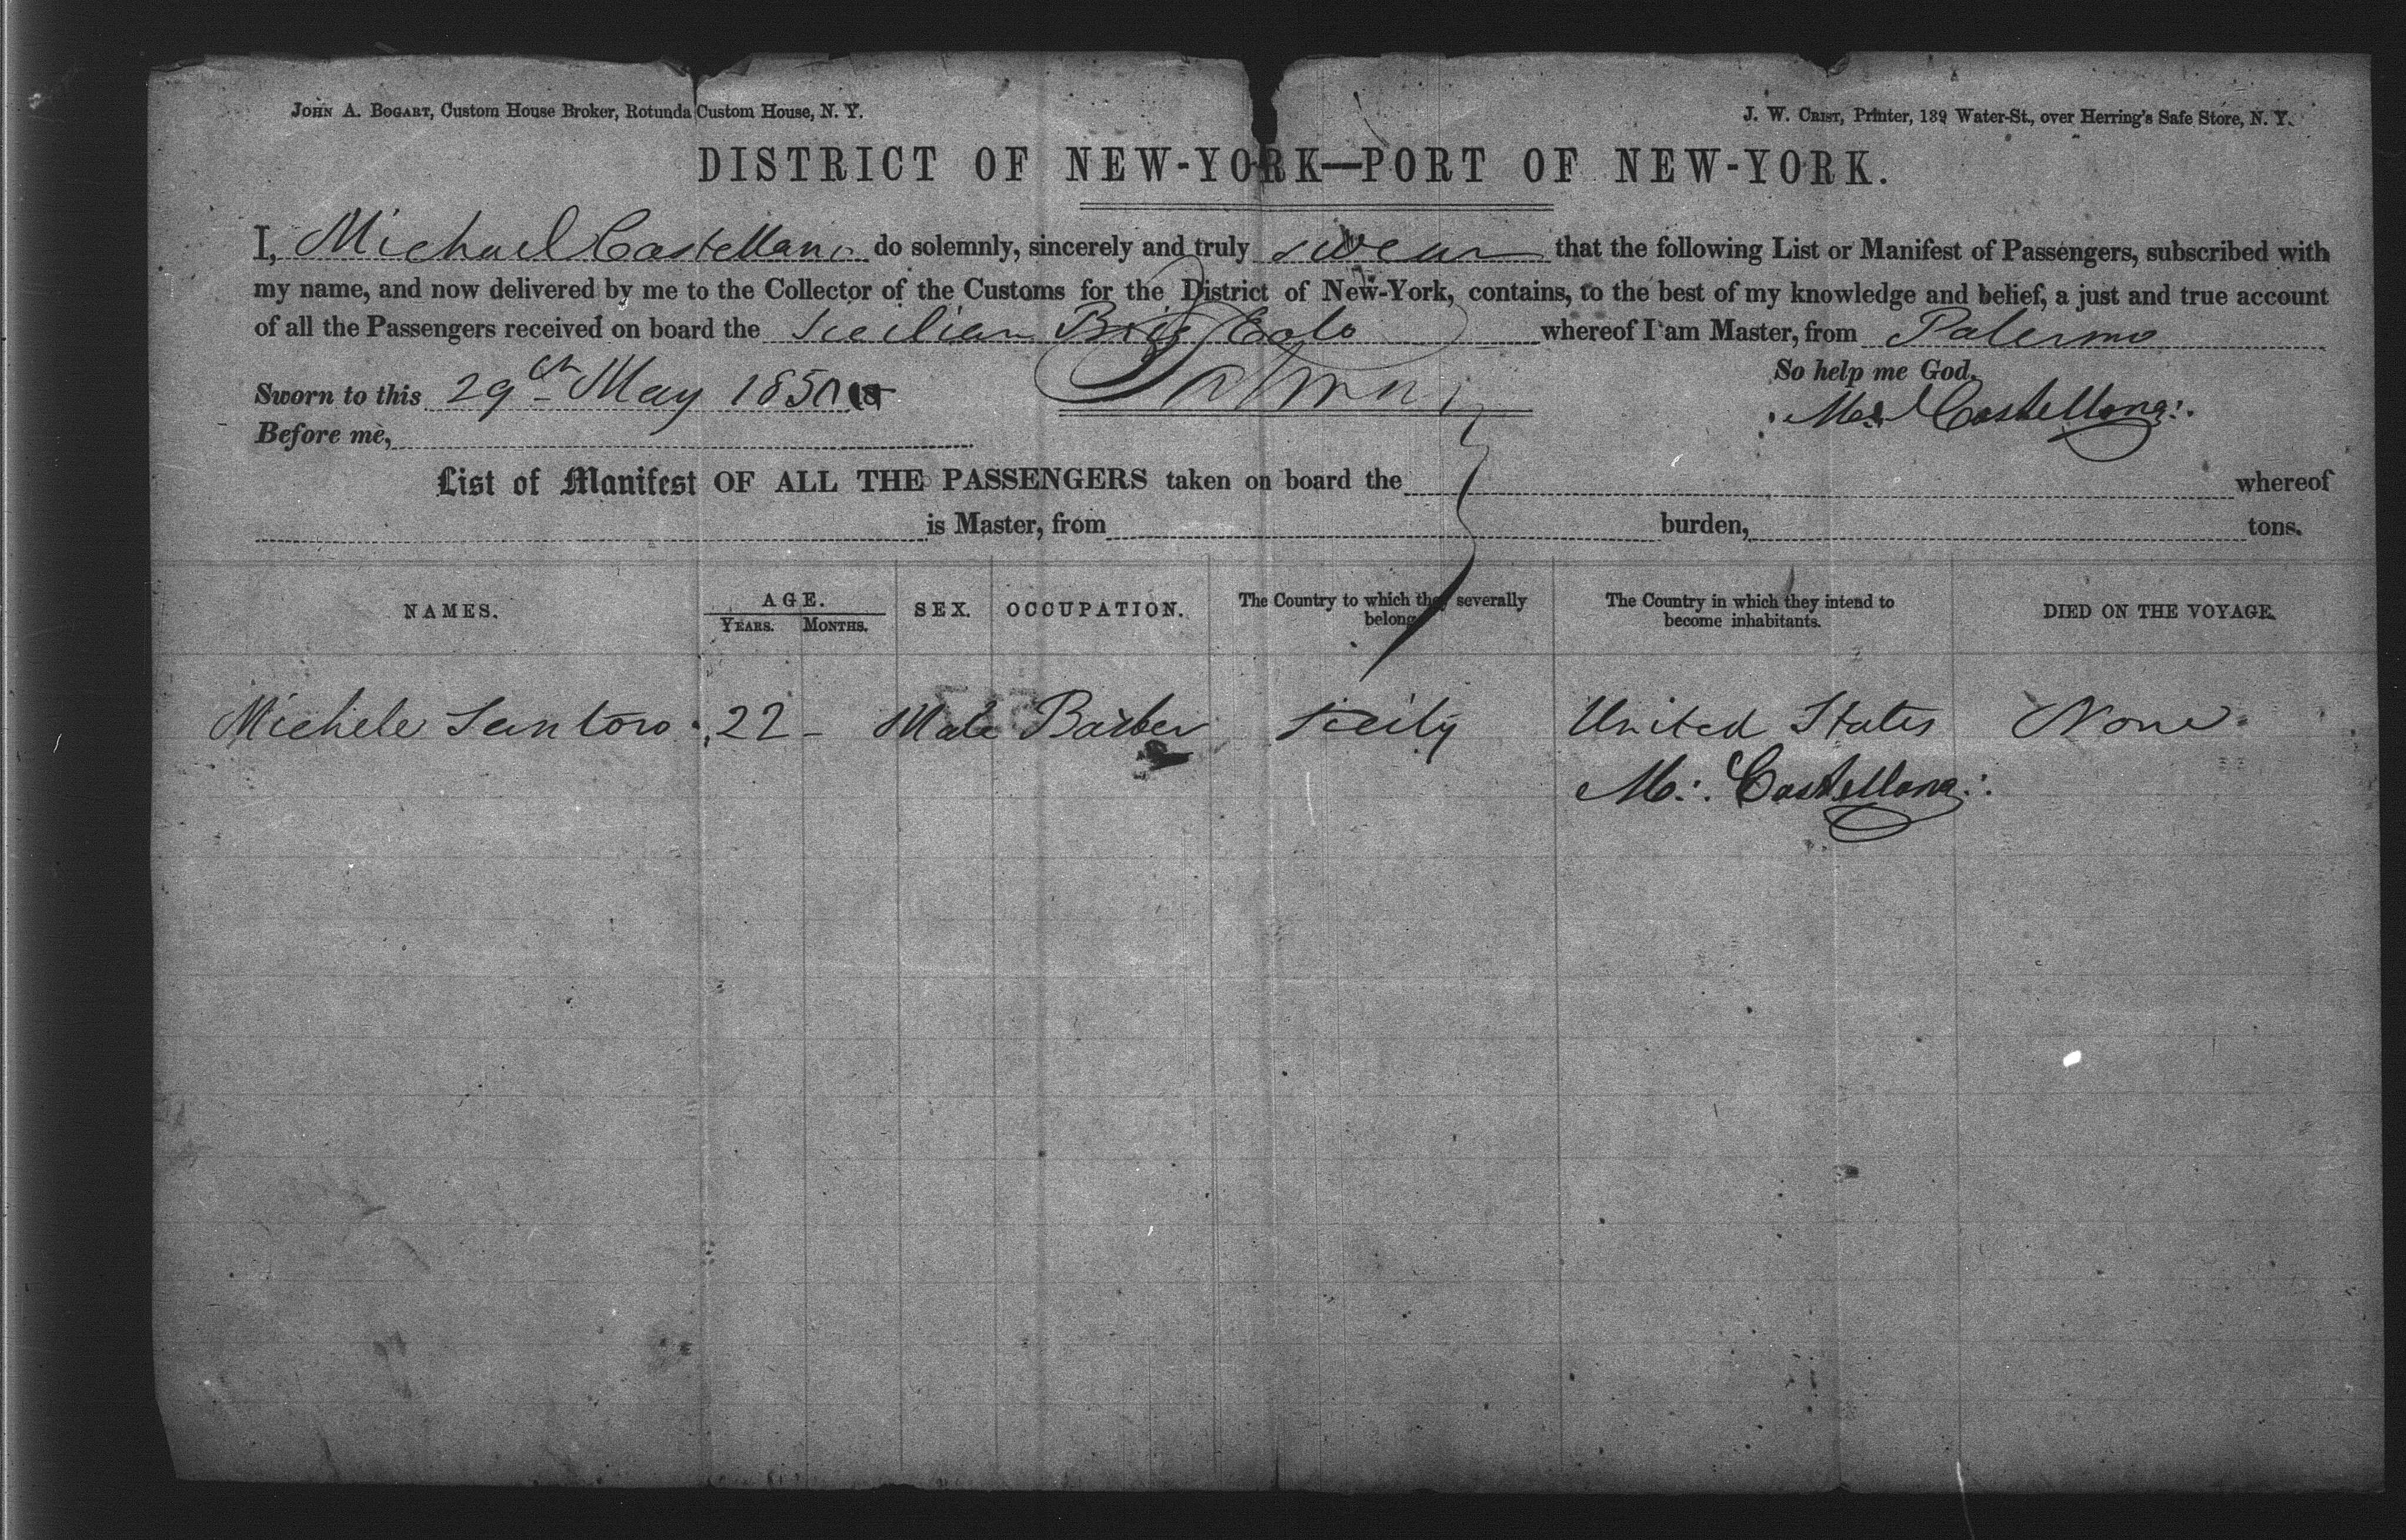 JOHN A. BOGART, Custom House Broker, Rotunda Custom House, N. Y.
J. W. CRIST, Printer, 139 Water-St., over Herring's Safe Store, N. Y.
DISTRICT OF NEW-YORK—PORT OF NEW-YORK.
I, Michael Castellano do solemnly, sincerely and truly swear that the following List or Manifest of Passengers, subscribed with
my name, and now delivered by me to the Collector of the Customs for the District of New-York, contains, to the best of my knowledge and belief, a just and true account
of all the Passengers received on board the Sicilian Brig Eolo whereof I am Master, from Palermo
So help me God.
Sworn to this 29th May 1850
M. Castellana
Before me,
List of Manifest OF ALL THE PASSENGERS taken on board the whereof
is Master, from burden, tons.
NAMES. AGE. SEX. OCCUPATION. The Country to which they severally belong. The Country in which they intend to become inhabitants. DIED ON THE VOYAGE.
YEARS. MONTHS.
Michele Santoro 22 - Male Barber Sicily United States None
M. Castellana